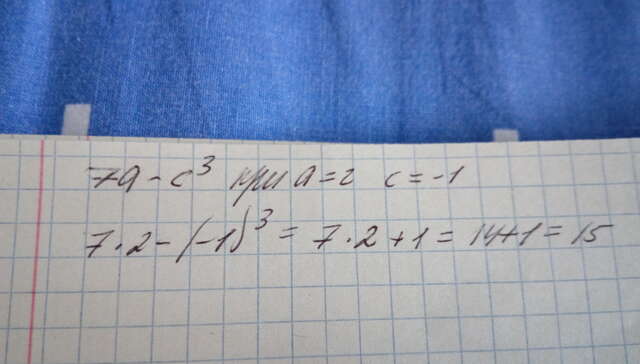 7a - c³ при a = 2 c = -1
7 · 2 - (-1)³ = 7 · 2 + 1 = 14 + 1 = 15